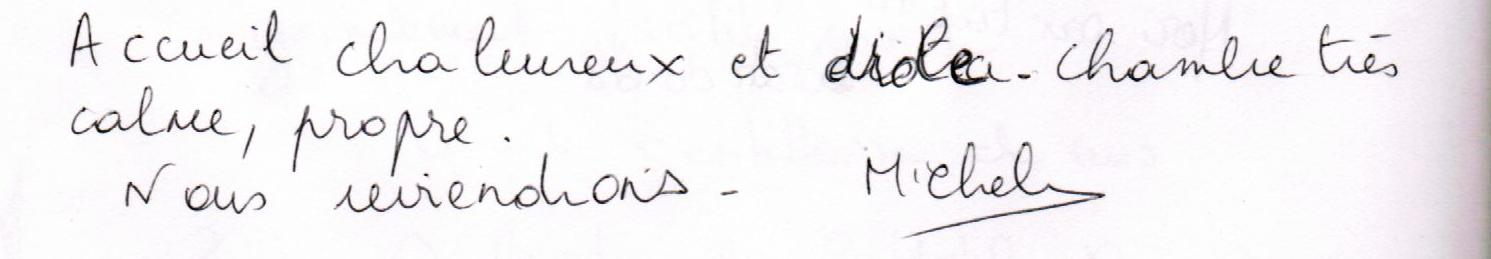 Accueil chaleureux et - chambre très
calme, propre.
Nous reviendrons - Michel